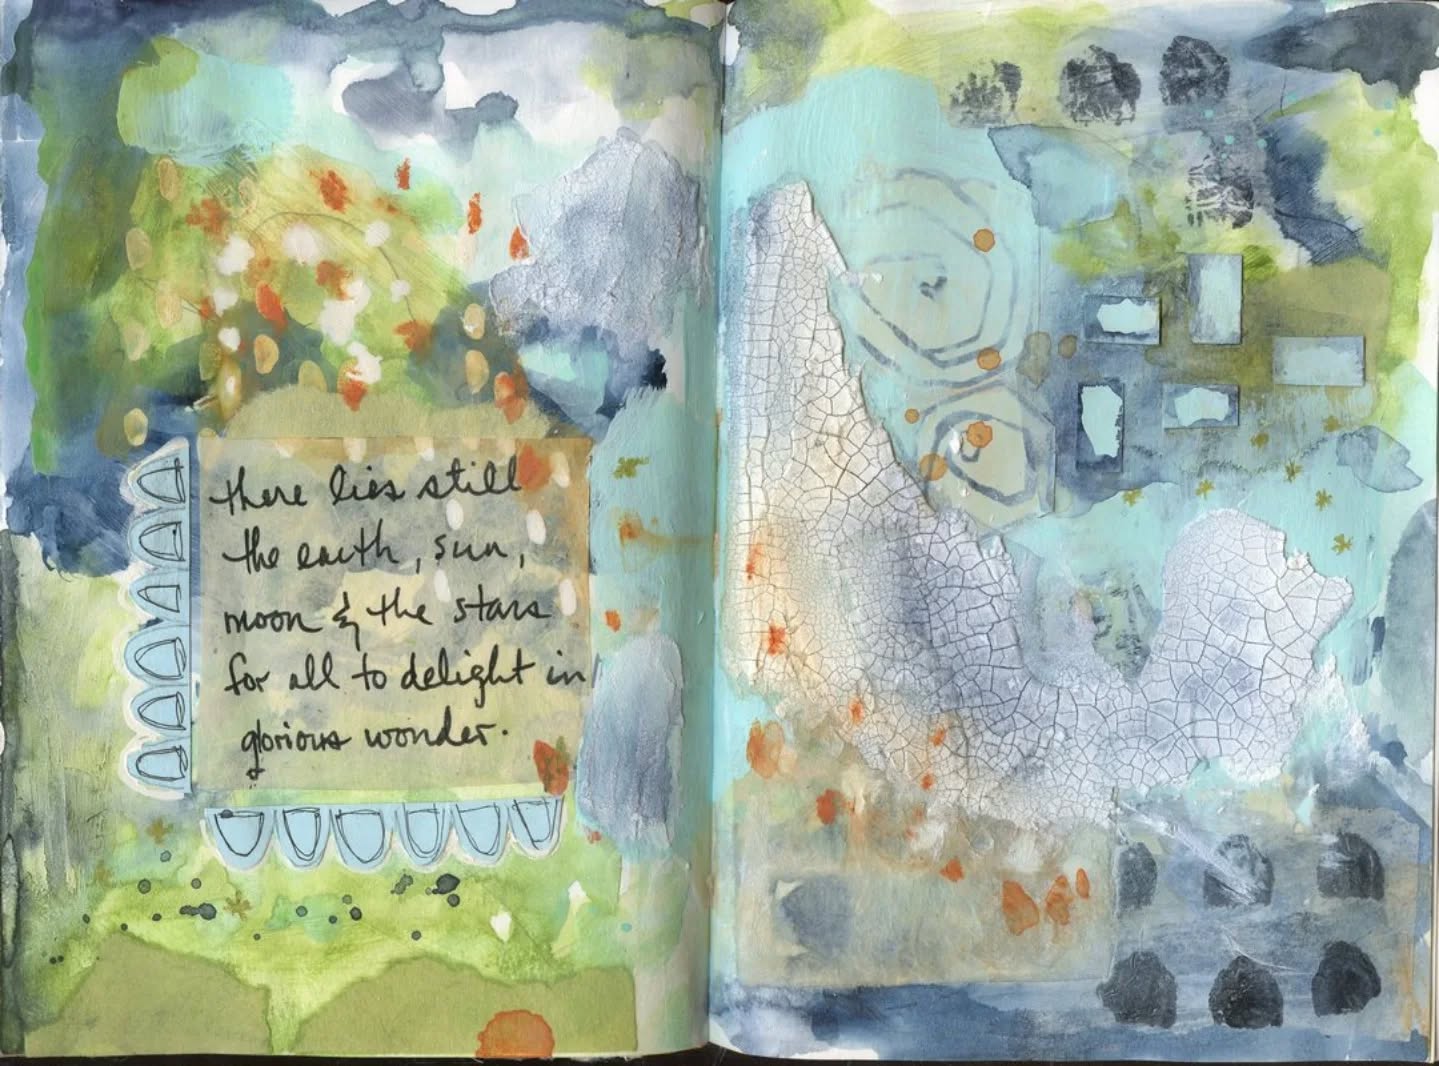 there lies still
the earth, sun,
moon & the stars
for all to delight in
glorious wonder.